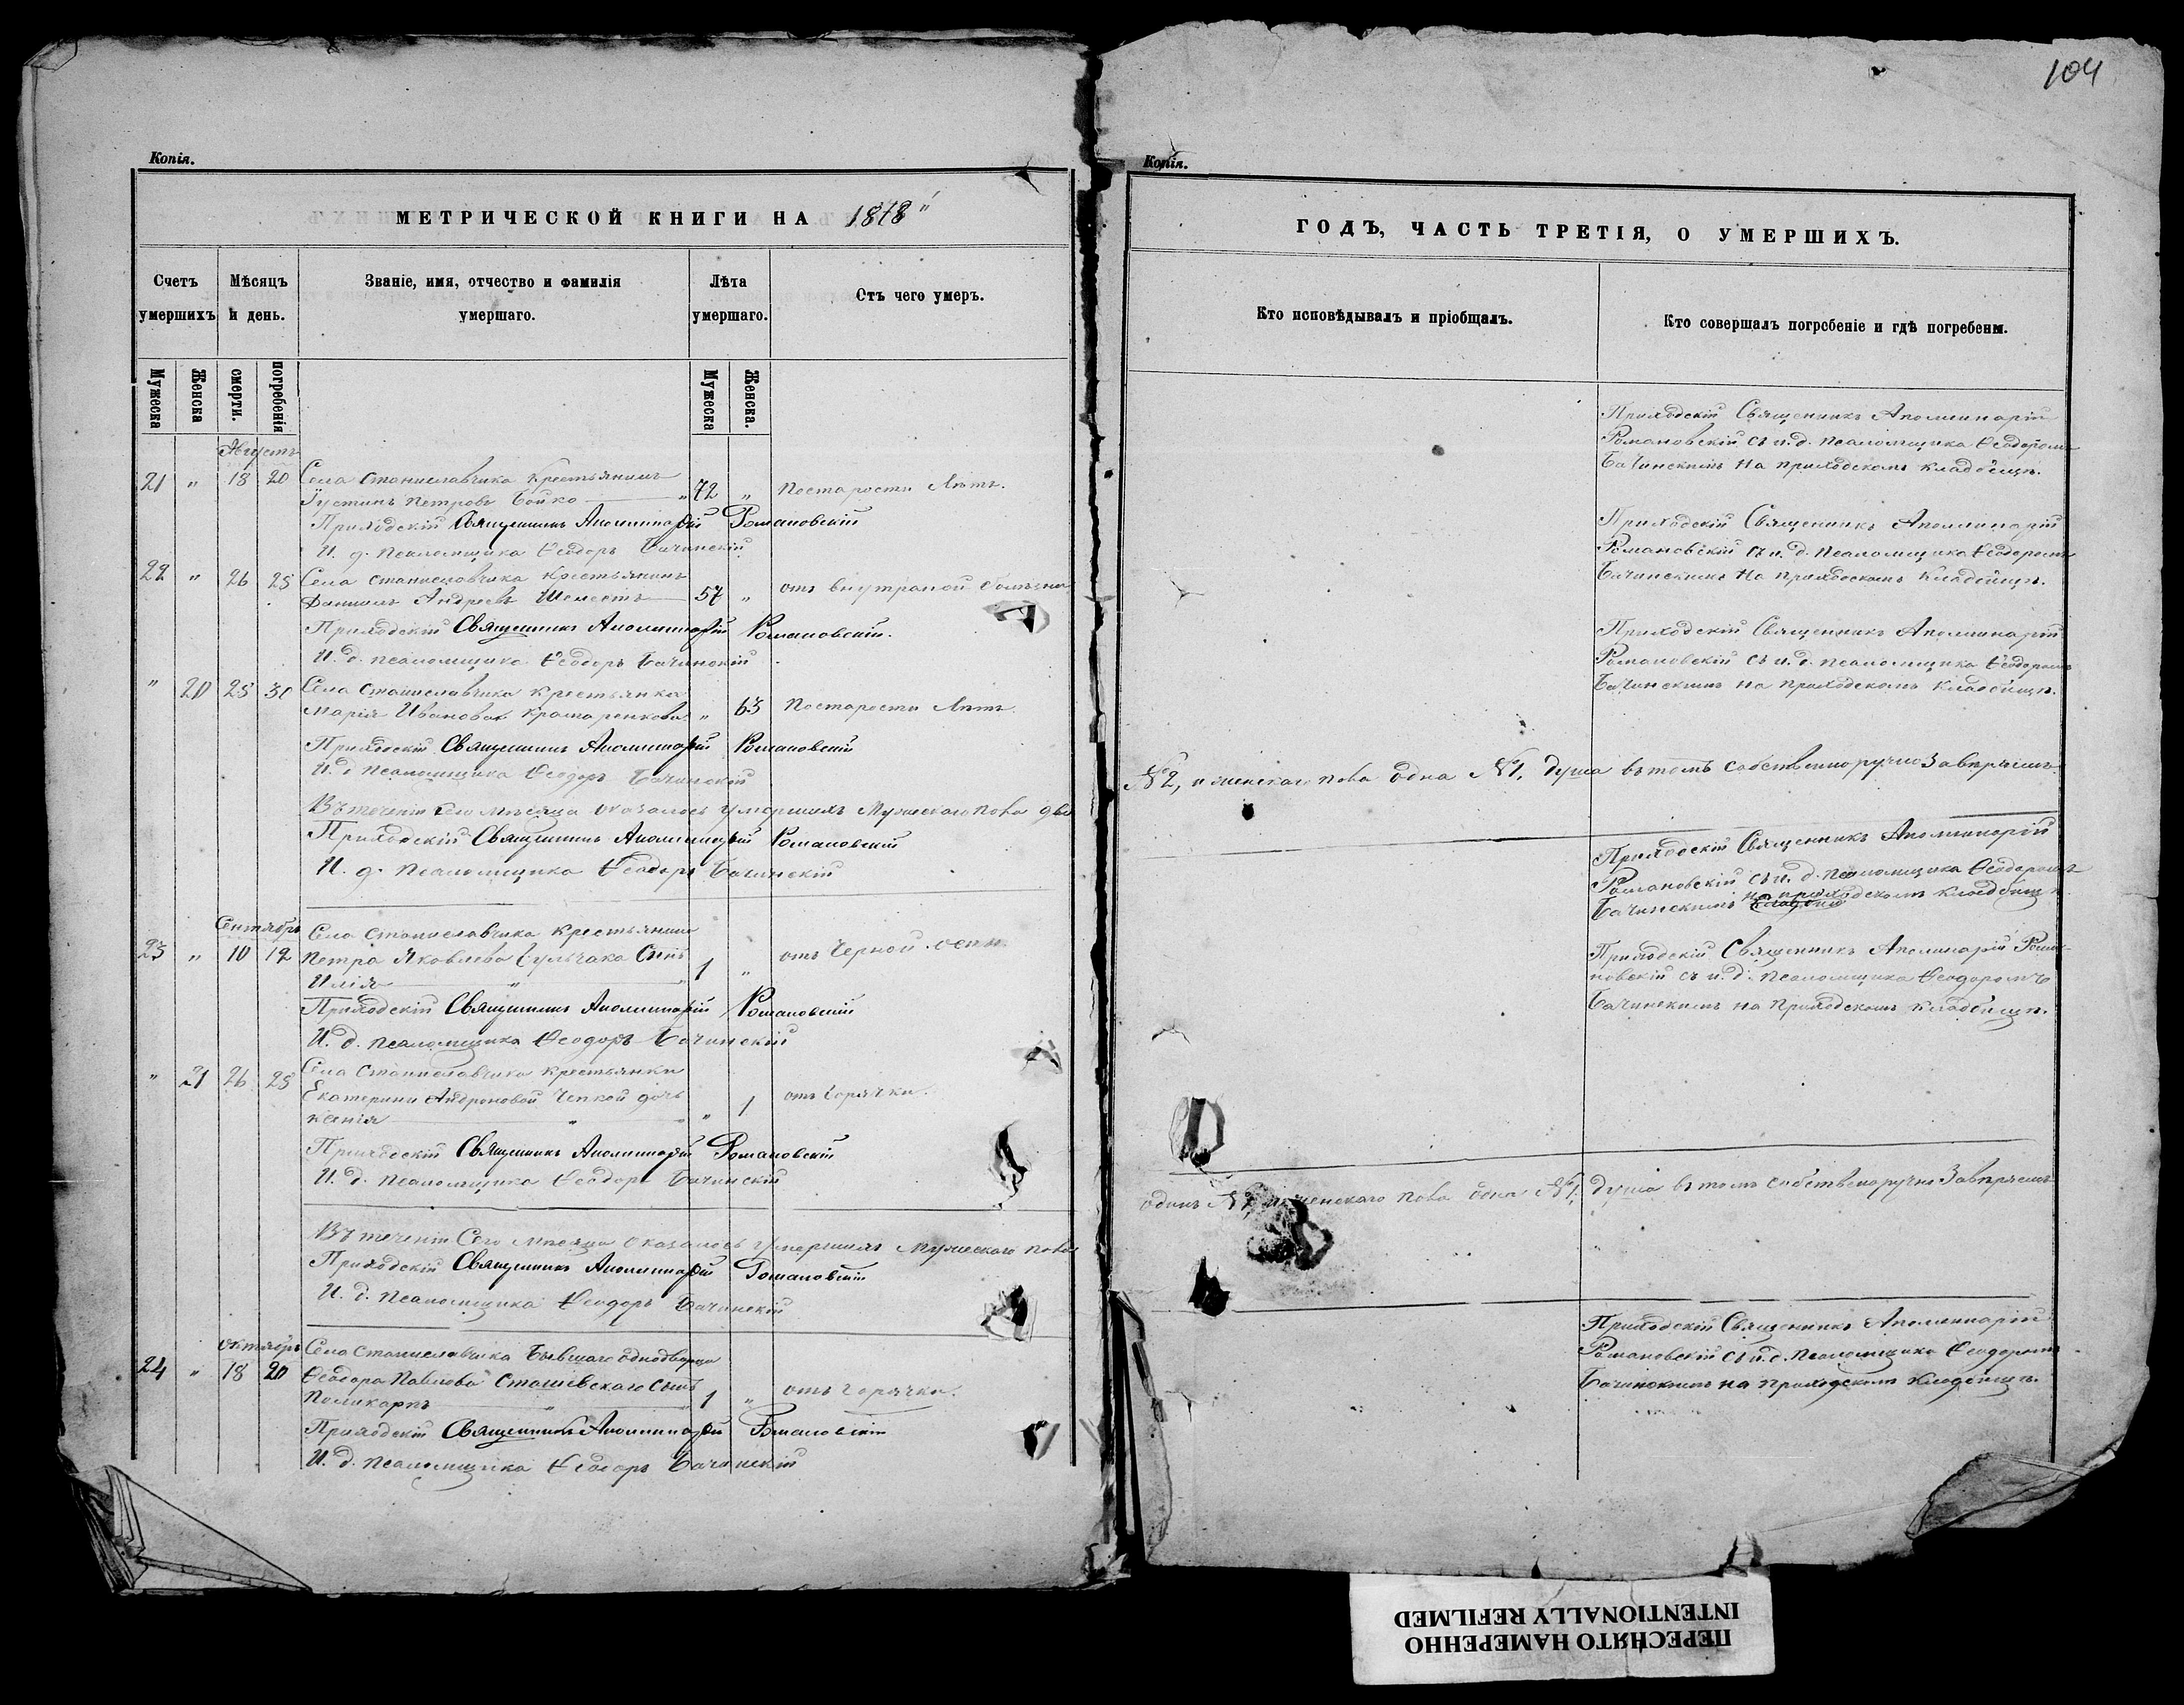 104
Копія.
МЕТРИЧЕСКОЙ КНИГИ НА 1878
Счетъ умершихъ
Мѣсяцъ и день.
Званіе, имя, отчество и фамилія умершаго.
Лѣта умершаго.
Отъ чего умеръ.
Мужеска
Женска
смерти.
погребенія
Мужеска
Женска.
Августъ
21 " 18 20 Села Станиславчика крестьянинъ
Іустинъ Петровъ Бойко " 72 " По старости лѣтъ.
Приходскій Священникъ Аполлинарій Романовскій
И. д. псаломщика Ѳеодоръ Бачинскій
22 " 26 28 Села Станиславчика крестьянинъ
Даніилъ Андреевъ Шелестъ 57 " отъ внутреной болѣзни
Приходскій Священникъ Аполлинарій Романовскій.
И. д. псаломщика Ѳеодоръ Бачинскій
" 20 28 30 Села Станиславчика крестьянка
Марія Иванова Крамаренкова " 63 По старости лѣтъ.
Приходскій Священникъ Аполлинарій Романовскій
И. д. псаломщика Ѳеодоръ Бачинскій
Въ теченіи сего мѣсяца оказалось умершихъ мужескаго пола два
Приходскій Священникъ Аполлинарій Романовскій
И. д. псаломщика Ѳеодоръ Бачинскій
Сентябрь
Села Станиславчика крестьянина
23 " 10 12 Петра Яковлева сынъ
Илія " 1 " отъ черной оспы
Приходскій Священникъ Аполлинарій Романовскій
И. д. псаломщика Ѳеодоръ Бачинскій
" 21 26 28 Села Станиславчика крестьянки
Екатерины Андроновой дочь
Ксенія " " 1 отъ горячки.
Приходскій Священникъ Аполлинарій Романовскій
И. д. псаломщика Ѳеодоръ Бачинскій
Въ теченіи сего мѣсяца оказалось умершихъ мужескаго пола
Приходскій Священникъ Аполлинарій Романовскій
И. д. псаломщика Ѳеодоръ Бачинскій
Октябрь
Села Станиславчика бывшаго однодворца
24 " 18 20 Ѳеодора Павлова Сташевскаго сынъ
Поликарпъ " 1 " отъ горячки.
Приходскій Священникъ Аполлинарій Романовскій
И. д. псаломщика Ѳеодоръ Бачинскій
Копія.
ГОДЪ, ЧАСТЬ ТРЕТІЯ, О УМЕРШИХЪ.
Кто исповѣдывалъ и пріобщалъ.
Кто совершалъ погребеніе и гдѣ погребены.
Приходскій Священникъ Аполлинарій
Романовскій съ и. д. псаломщика Ѳеодоромъ
Бачинскимъ на приходскомъ кладбищѣ.
Приходскій Священникъ Аполлинарій
Романовскій съ и. д. псаломщика Ѳеодоромъ
Бачинскимъ на приходскомъ кладбищѣ.
Приходскій Священникъ Аполлинарій
Романовскій съ и. д. псаломщика Ѳеодоромъ
Бачинскимъ на приходскомъ кладбищѣ.
№ 2, и женскаго пола одна № 1, душа въ томъ собственноручно завѣряемъ
Приходскій Священникъ Аполлинарій
Романовскій съ и. д. псаломщика Ѳеодоромъ
Бачинскимъ на приходскомъ кладбищѣ
Приходскій Священникъ Аполинарій Рома-
новскій съ и. д. псаломщика Ѳеодоромъ
Бачинскимъ на приходскомъ кладбищѣ.
одинъ № 1, и женскаго пола одна № 1, душа въ томъ собственоручно завѣряемъ
Приходскій Священникъ Аполлинарій
Романовскій съ и. д. псаломщика Ѳеодоромъ
Бачинскимъ на приходскомъ кладбищѣ.
ПЕРЕСНЯТО НАМЕРЕННО
INTENTIONALLY REFILMED